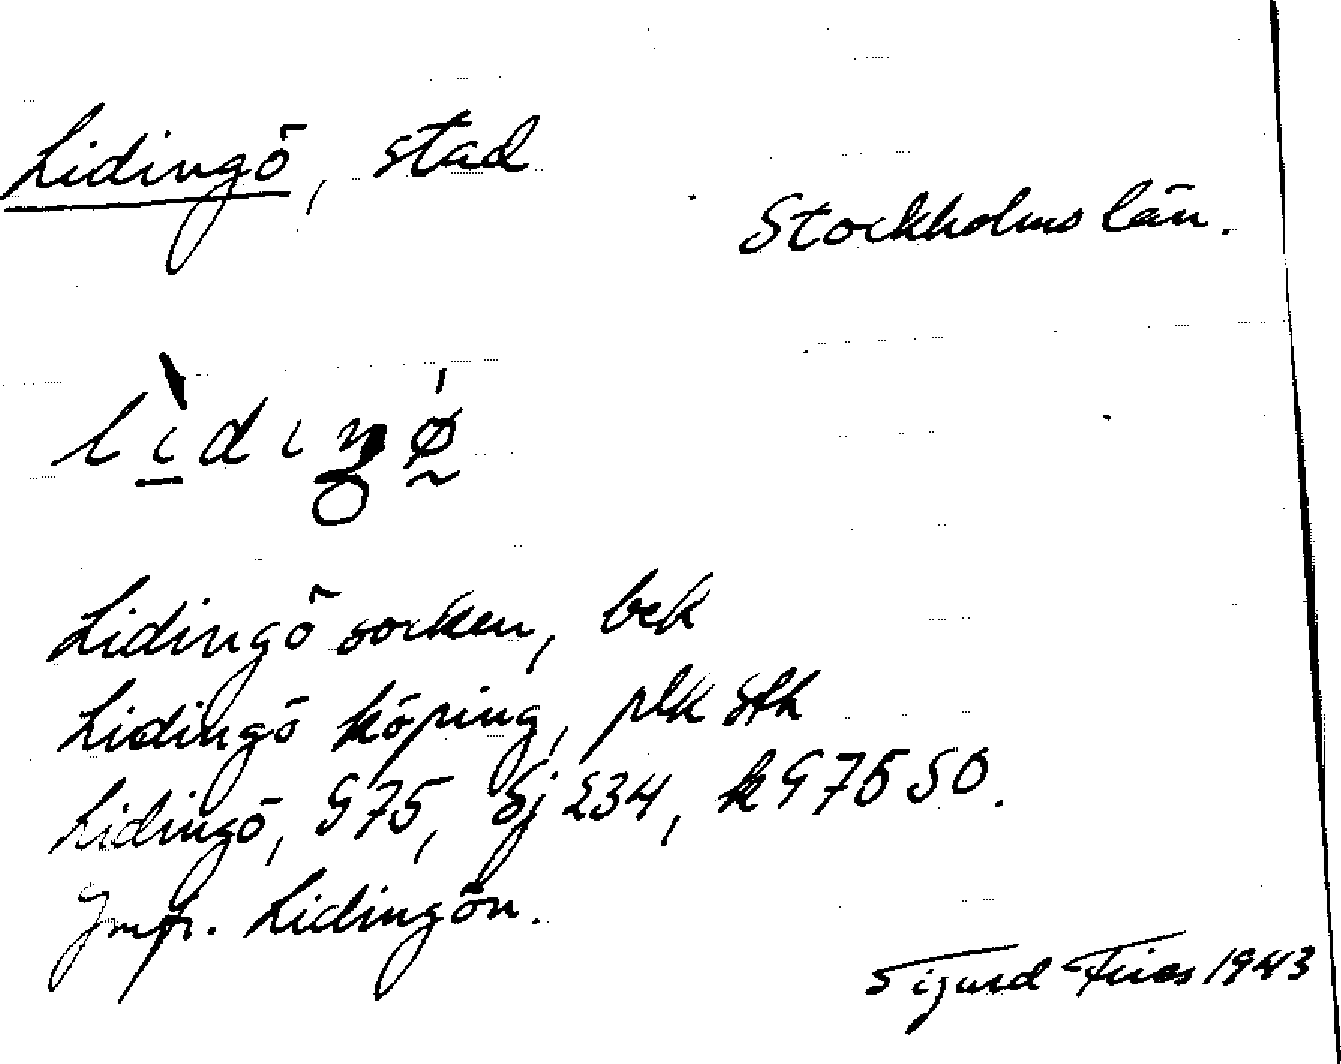 Lidingö, stad
Stockholms län.
Lidingö socken, bek
Lidingö köping, plk Sth
Lidingö, G75, Sj 234, k G75 SO.
Jmfr. Lidingön.
Sigurd Fries 1943